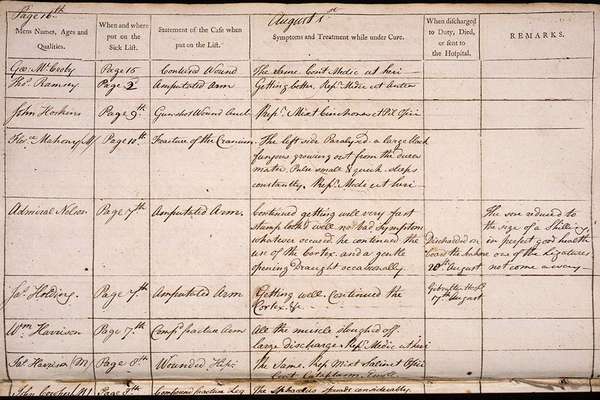 Page 16th
August 1st
Mens Names, Ages and Qualities.
When and where put on the Sick List.
Statement of the Case when put on the List.
Symptoms and Treatment while under Cure.
When discharged to Duty, Died, or sent to the Hospital.
REMARKS.
Geo: McCroby Page 15 Contused Wound The same Cont Medic at heri
Thos. Ramsey Page 2d Amputated Arm Getting better, Repr. Medic at
John Hoskins Page 9th Gunshot Wound Repr. Mixt Cinchonae
Mahony Page 10th Fracture of the Cranium The left side Paralysed a large black
fungous growing out from the dura
mater, Pulse small & quick sleeps
constantly. Repr. Medic at heri
Admiral Nelson Page 7th Amputated Arm Continued getting well very fast
Stump look'd well no bad Symptom
whatever occured he continued the
use of the Cortex and a gentle
opening Draught occasionally.
Discharged on
board the
20th August
The sore reduced to
the size of a Shilling
in perfect good health
one of the Ligatures
not come away
Jas. Holding Page 7th Amputated Arm Getting well. Continued the
Cortex &c
17th August
Wm. Harrison Page 7th Compd fracture Arm All the muscle sloughed off
large discharge Repr. Medic at heri
Harrison (M) Page 8th Wounded Hips The Same. Rep Mixt Salinet
Cont Cataplasm
John Page 8th Compound fracture Leg The considerably.